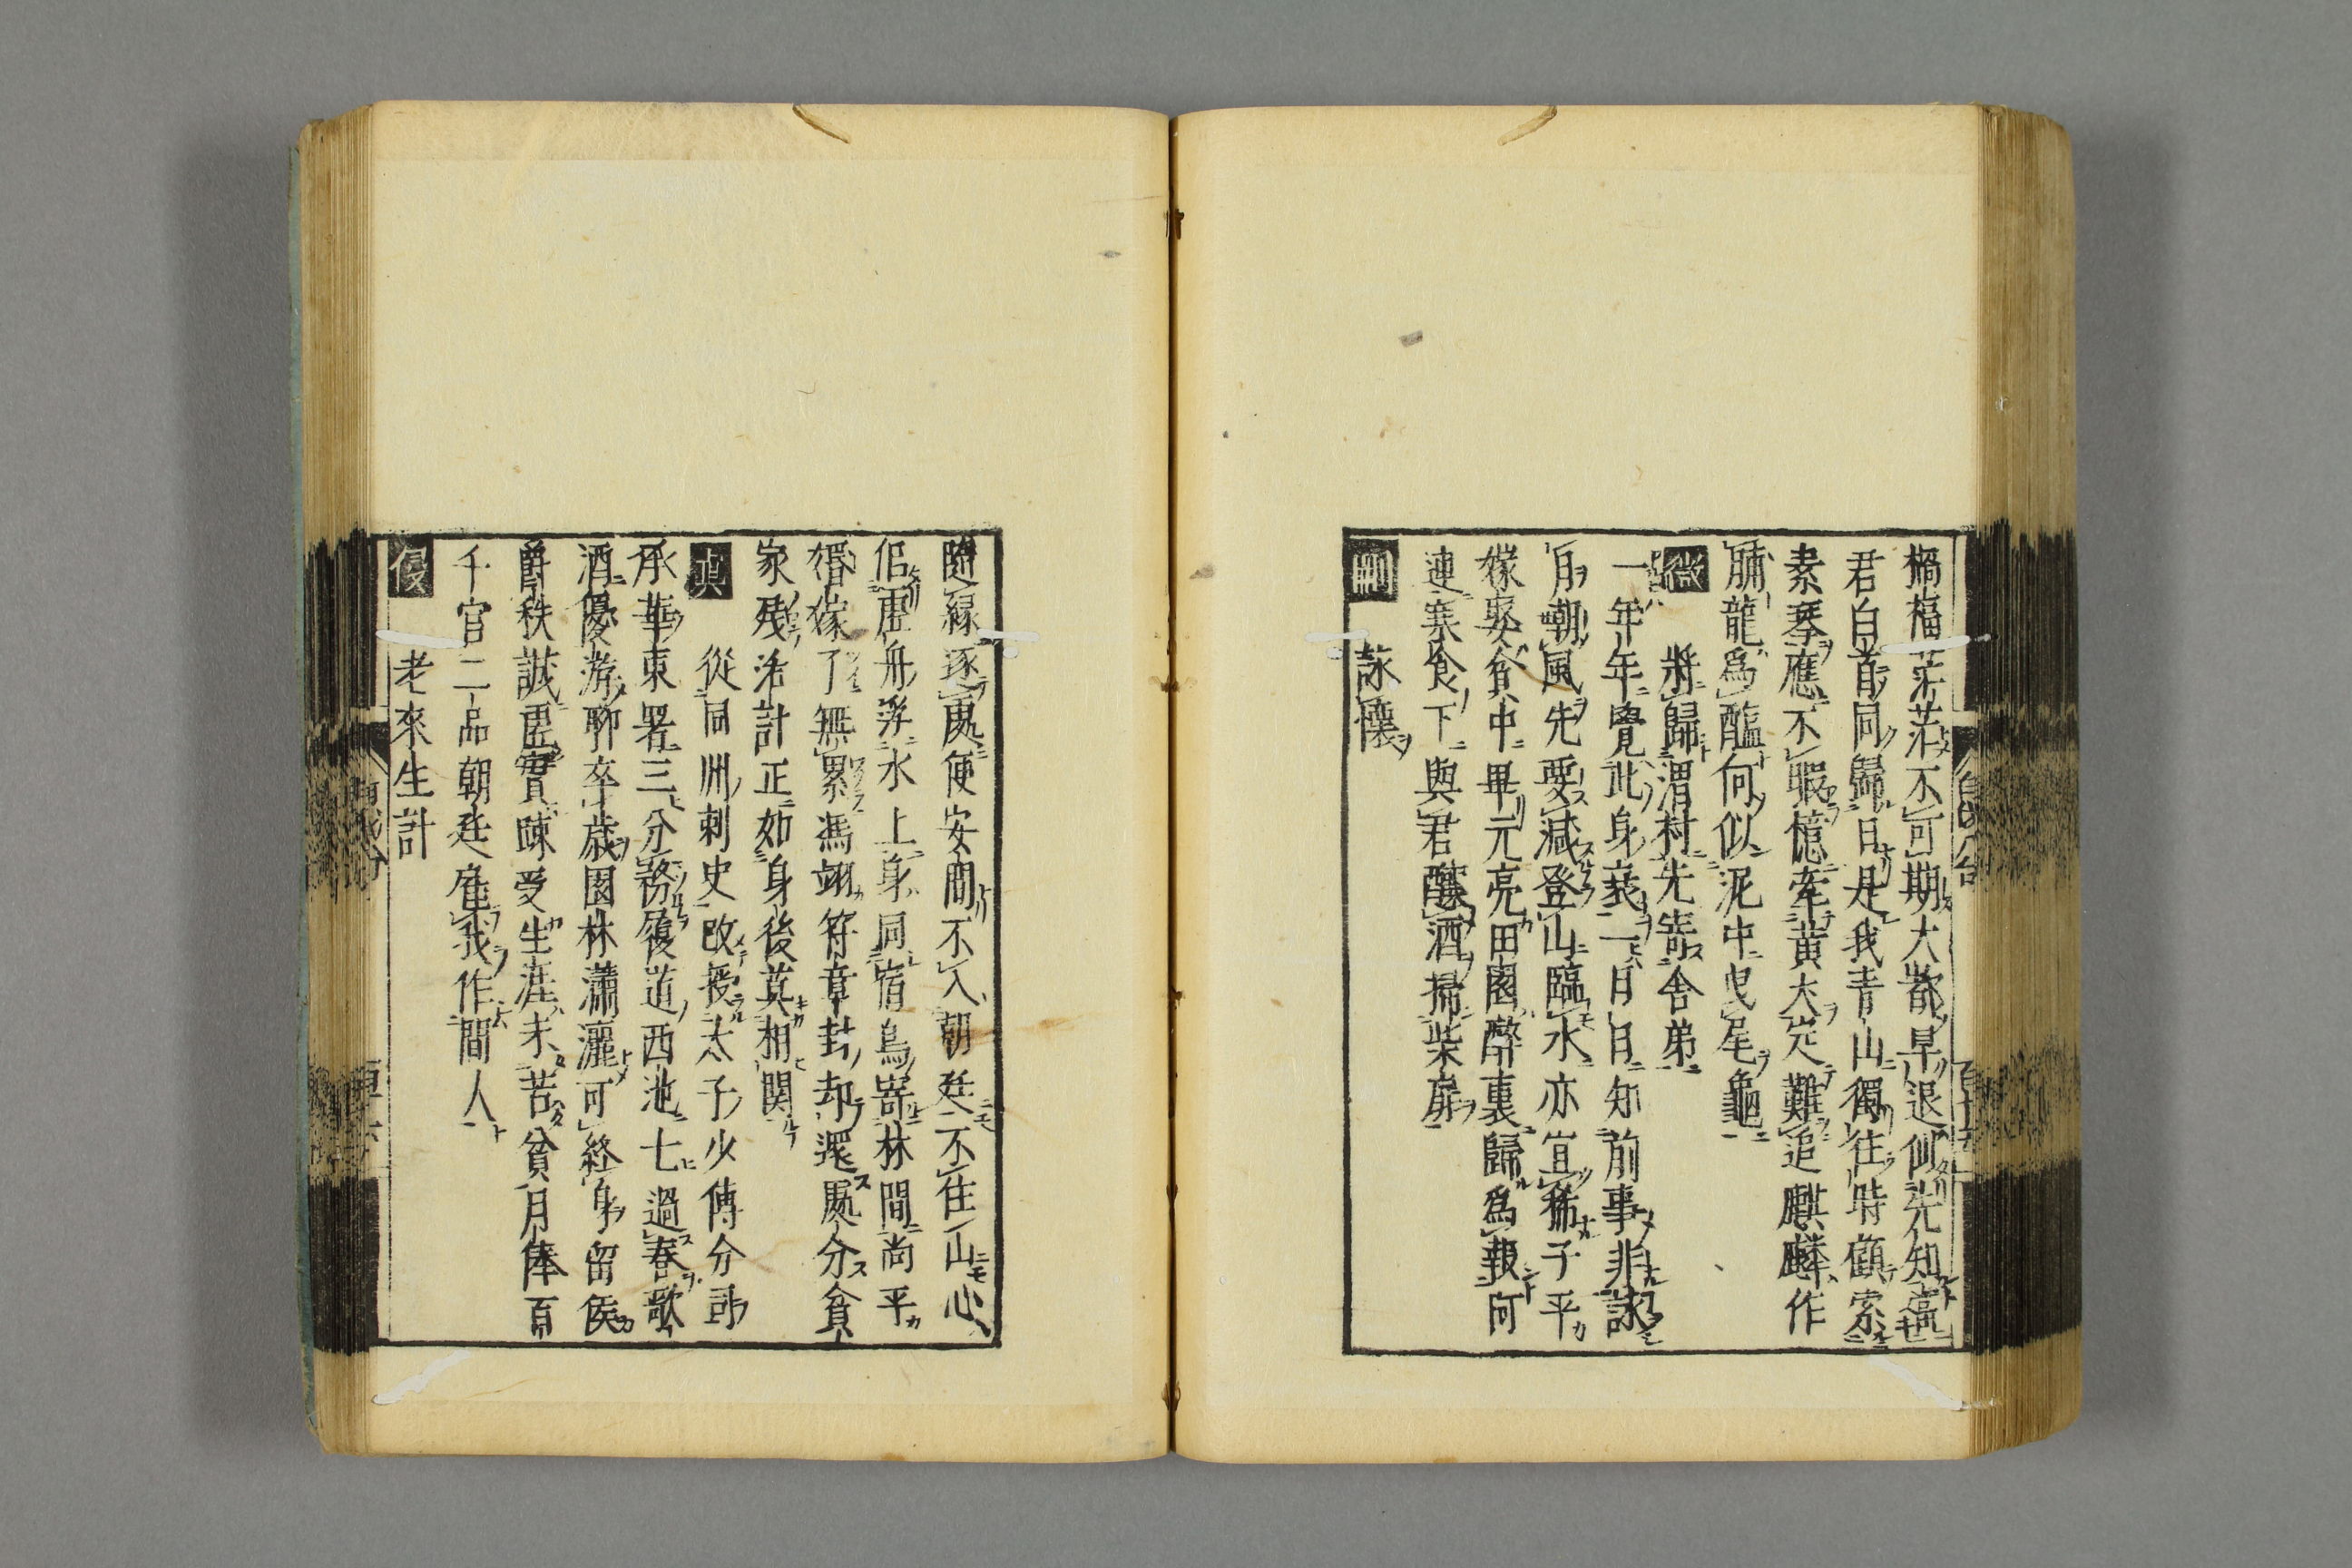 禍福茫茫不可期大都早退似先知當
君白首同歸日是我青山獨往時顧索
素琴應不暇憶牽黃犬定難追麒麟作
脯龍為醢何似泥中曳尾龜
微　將歸渭村先寄舍弟
一年年覺此身衰一日日知前事非詠
月嘲風先要減登山臨水亦宜稀子平
嫁娶貧中畢元亮田園醉裏歸為報阿
連寒食下與君釀酒掃柴扉
刪　詠懷
隨緣逐處便安間不入朝廷不住山心
似虛舟浮水上身同宿鳥寄林間尚平
婚嫁了無累馮翊符章封却還處分貧
家殘活計正如身後莫相関
真　從同州刺史改授太子少傅分司
承華東署三分務履道西池七過春歌
酒優游聊卒歲園林瀟灑可終身留侯
爵秩誠虛貴疎受生涯未苦貧月俸百
千官二品朝廷雇我作間人
侵　老來生計